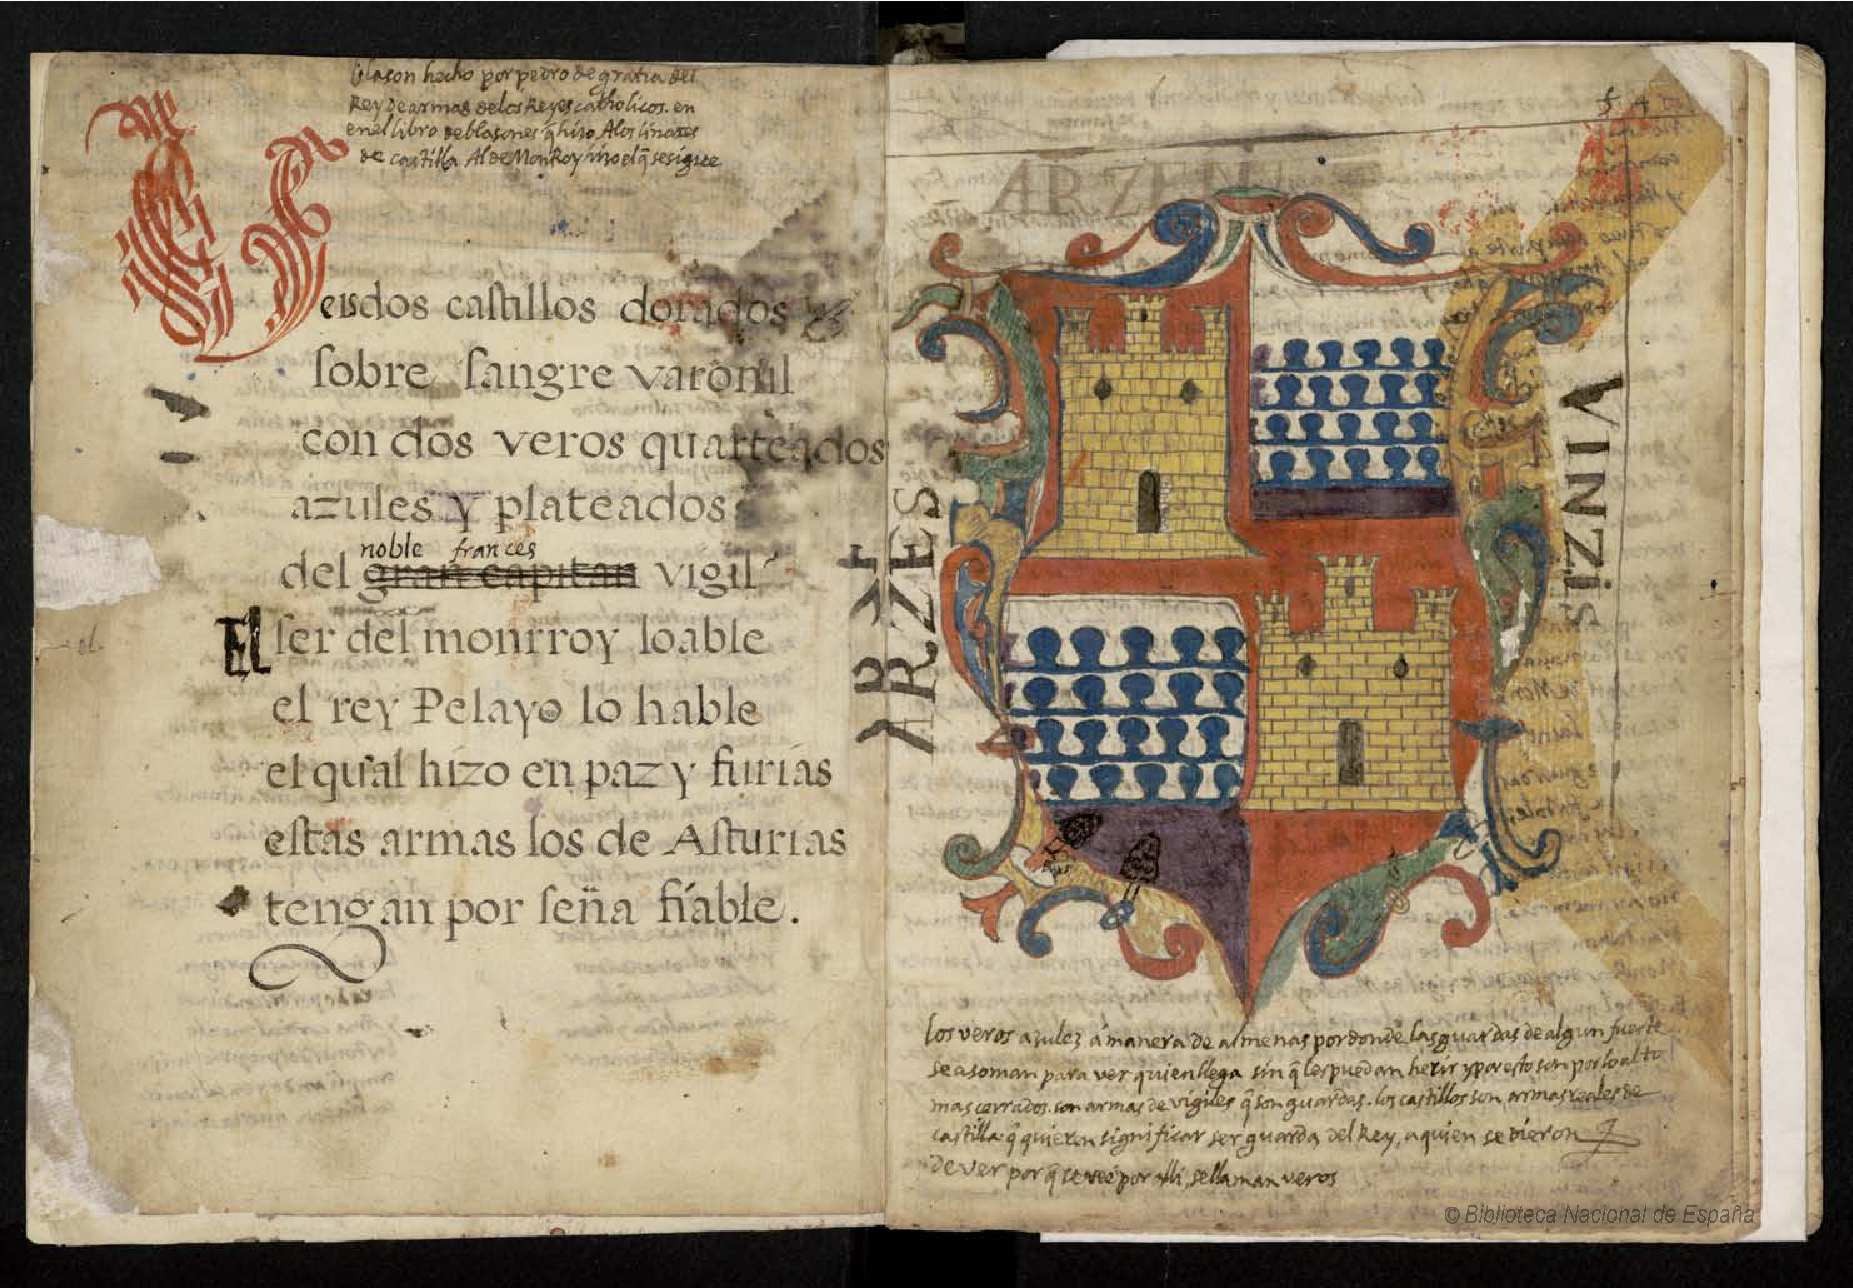 blason hecho por pedro de gratia dei
Rey de armas de los Reyes catholicos. en
en el libro de blasones q̃ hizo A los linages
de castilla Al de MonRoy hizo el q̃ se sigue
Ver dos castillos dorados
sobre sangre varonil
con dos veros quarteados
azules y plateados
noble frances
del gran capitan vigil
El ser del monrroy loable
el rey Pelayo lo hable
el qual hizo en paz y furias
estas armas los de Asturias
tengan por seña fiable.
ARZES
VINZIS
los veros azules á manera de almenas por donde las guardas de algun fuerte
se asoman para ver quien llega sin q̃ les puedan herir y por esto son por lo alto
mas cerrados. son armas de vigiles q̃ son guardas. los castillos son armas reales de
castilla q̃ quieren significar ser guarda del Rey, a quien se dieron
de ver por q̃ se veé por alli, se llaman veros
© Biblioteca Nacional de España